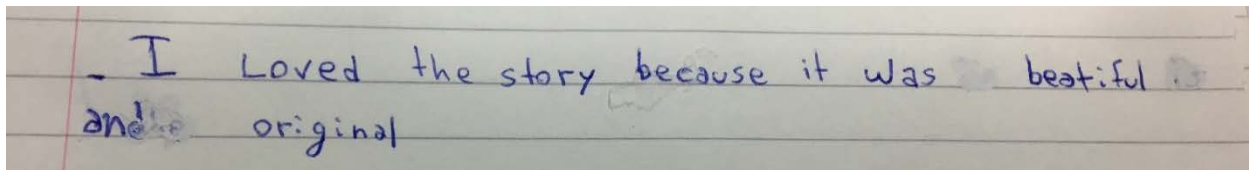 - I Loved the story because it was beatiful
and original